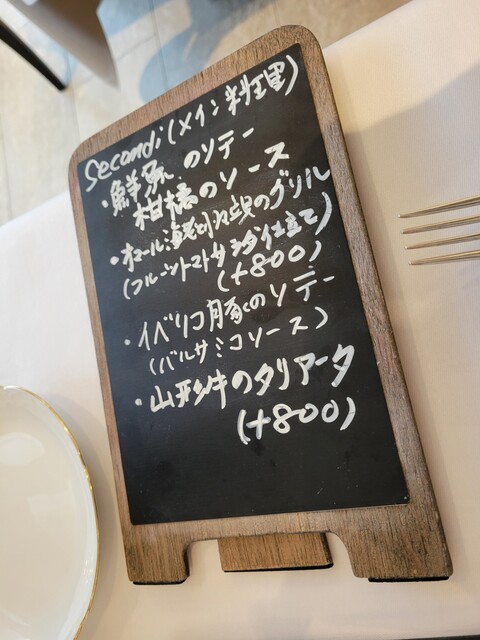 Secondi(メイン料理)
・鮮魚のソテー
柑橘のソース
・オマール海老と帆立貝のグリル
(フルーツトマト 仕立て)
(+800)
・イベリコ豚のソテー
(バルサミコソース)
・山形牛のタリアータ
(+800)